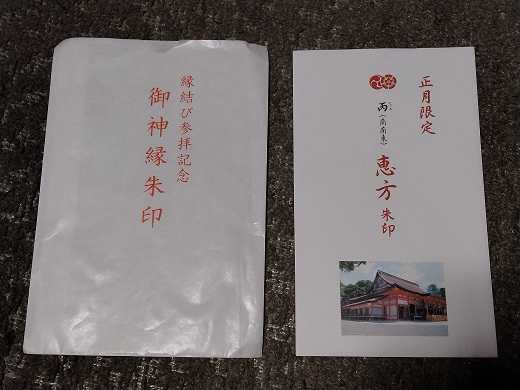 縁結び参拝記念
御神縁朱印
正月限定
丙(南南東)
恵方朱印